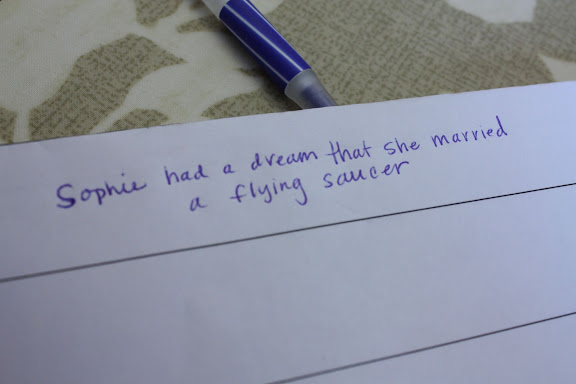 Sophie had a dream that she married
a flying saucer